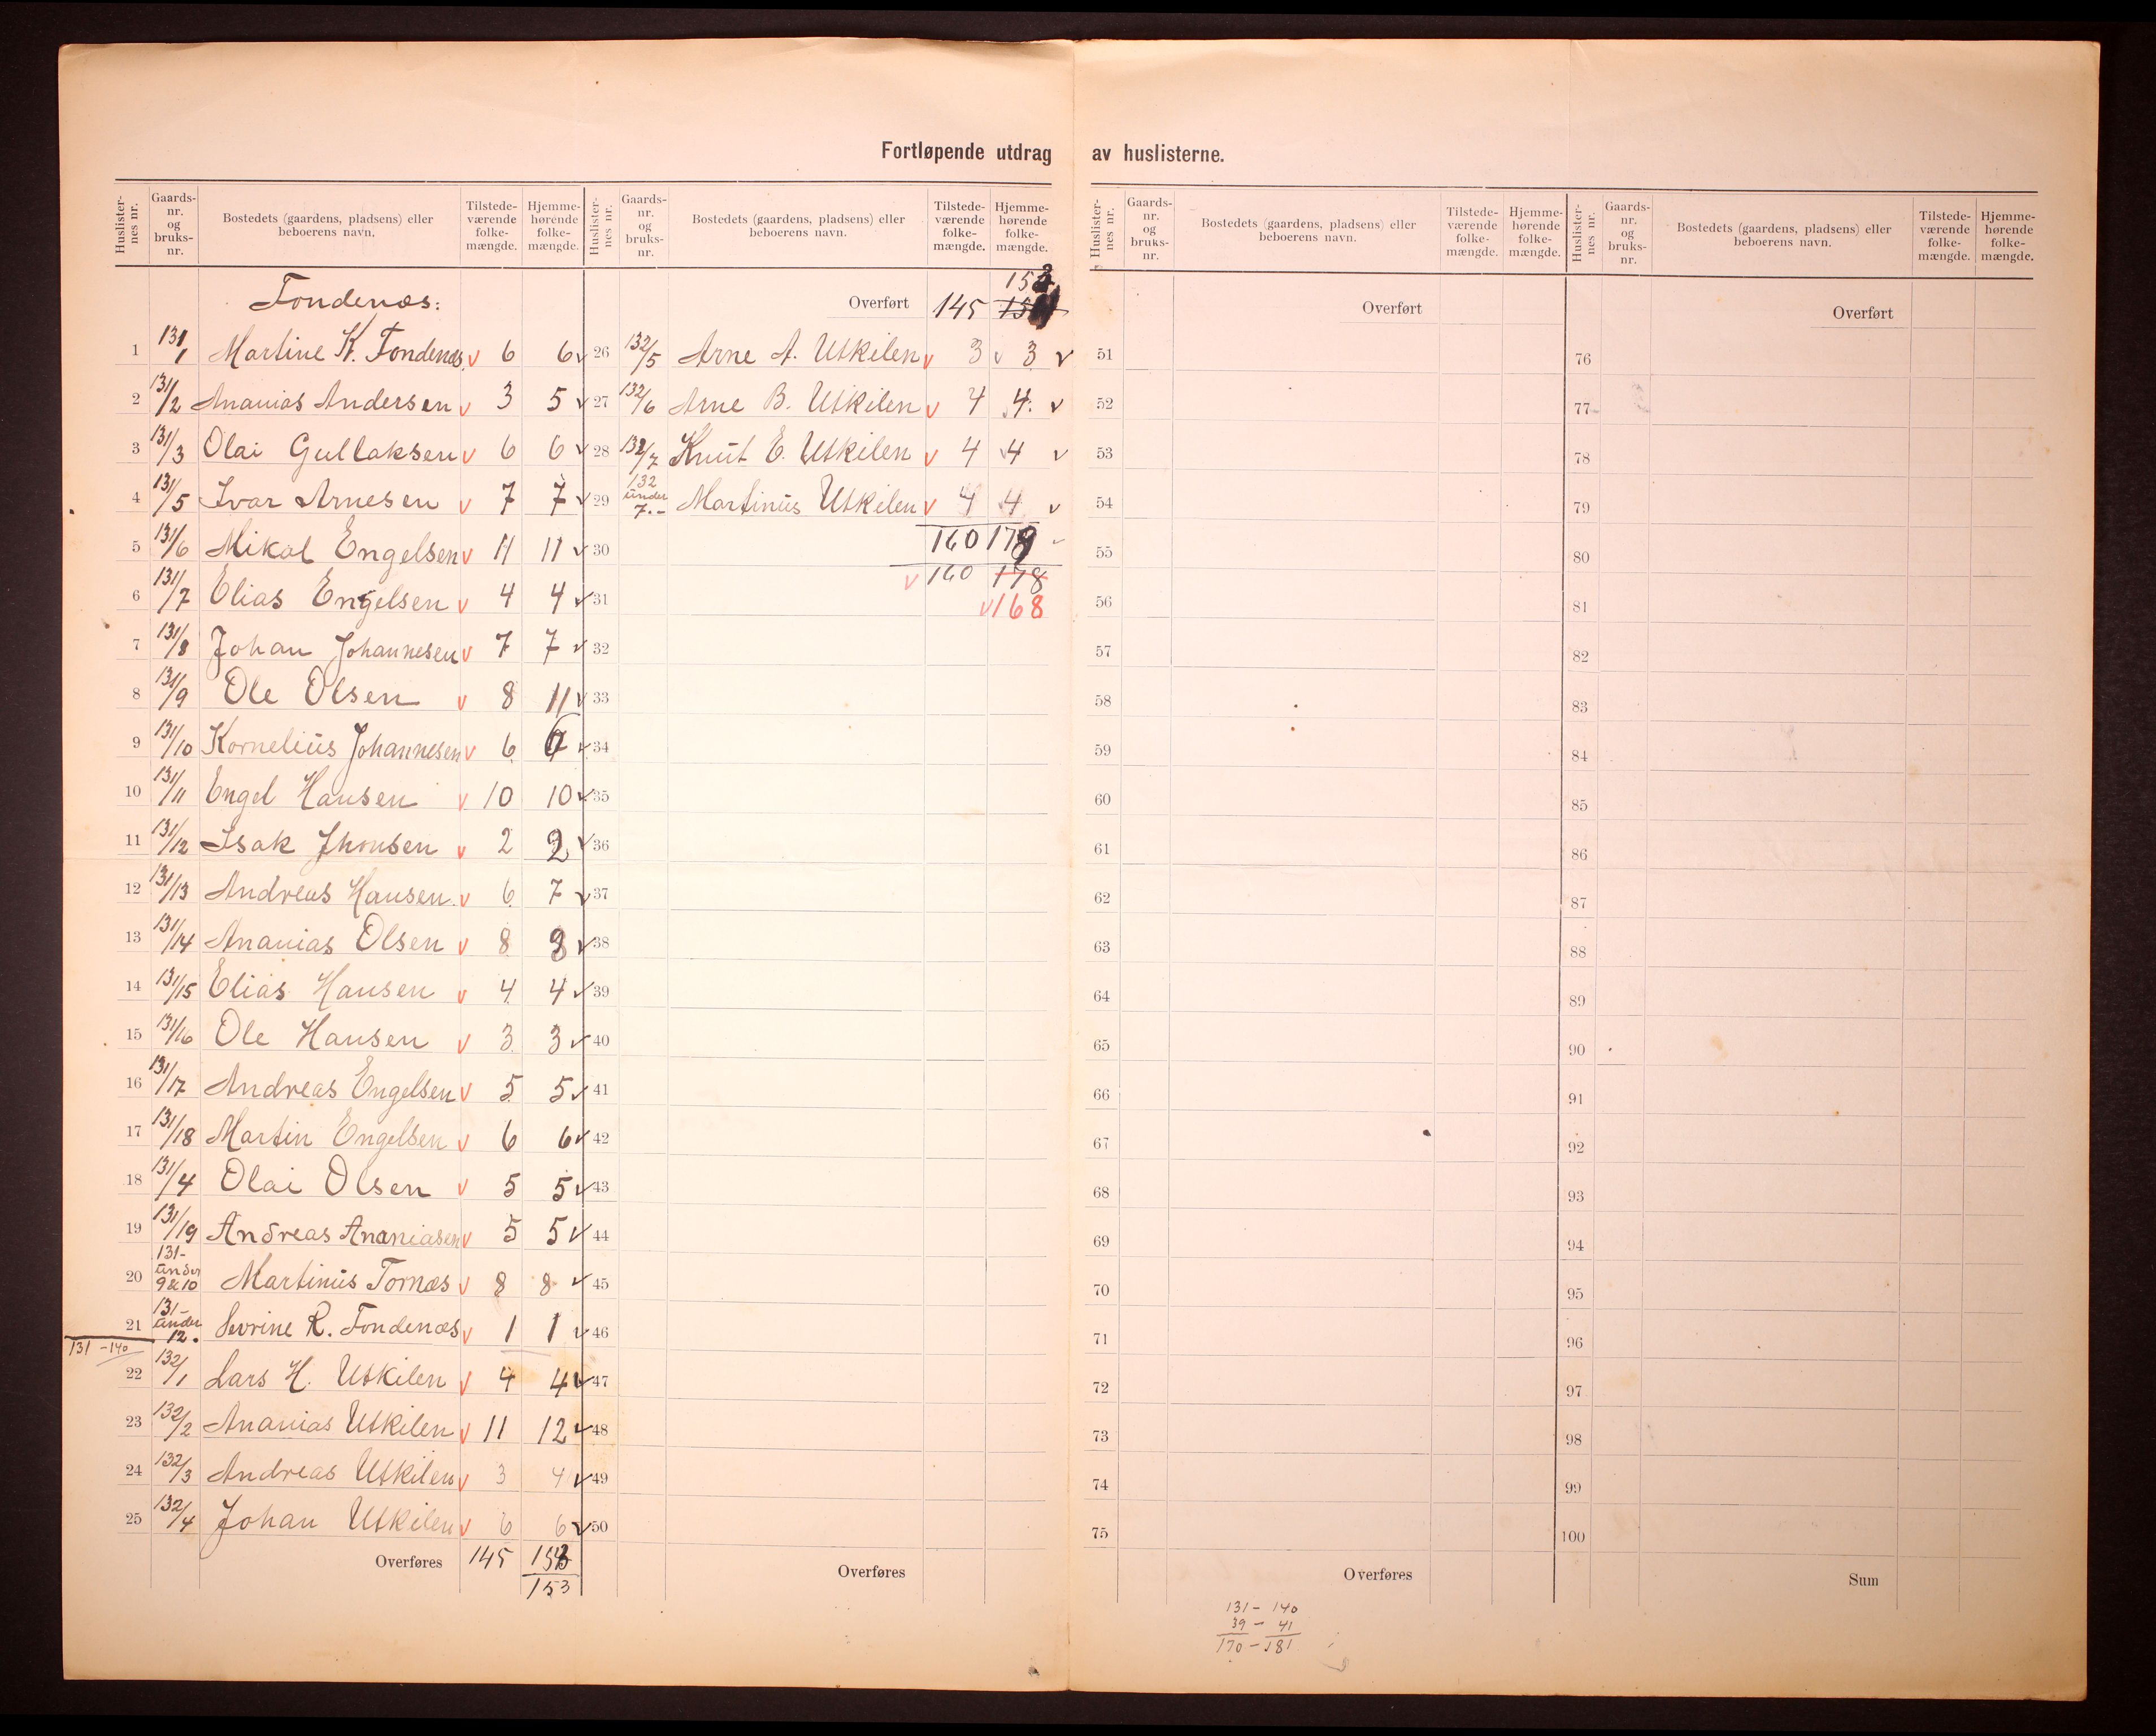 Fortløpende utdrag av huslisterne.
Huslister-nes nr. Gaards-nr. og bruks-nr. Bostedets (gaardens, pladsens) eller beboerens navn. Tilstede-værende folke-mængde. Hjemme-hørende folke-mængde.
Fondenæs:
1 131/1 Martine K. Fondenæs v 6 6 v
2 131/2 Ananias Andersen v 3 5 v
3 131/3 Olai Gullaksen v 6 6 v
4 131/5 Ivar Arnesen v 7 7 v
5 131/6 Mikal Engelsen v 11 11 v
6 131/7 Elias Engelsen v 4 4 v
7 131/8 Johan Johannesen v 7 7 v
8 131/9 Ole Olsen v 8 11 v
9 131/10 Kornelius Johannesen v 6 6 v
10 131/11 Engel Hansen v 10 10 v
11 131/12 Isak Jhonsen v 2 2 v
12 131/13 Andreas Hansen v 6 7 v
13 131/14 Ananias Olsen v 8 v
14 131/15 Elias Hansen v 4 4 v
15 131/16 Ole Hansen v 3 3 v
16 131/17 Andreas Engelsen v 5 5 v
17 131/18 Martin Engelsen v 6 6 v
18 131/4 Olai Olsen v 5 5 v
19 131/19 Andreas Ananiasen v 5 5 v
20 131- under 9 & 10 Martinus Tornæs v 8 8 v
21 131- under 12. Sevrine R. Fondenæs v 1 1 v
131 - 140
22 132/1 Lars H. Utkilen v 4 4 v
23 132/2 Ananias Utkilen v 11 12 v
24 132/3 Andreas Utkilen v 3 4 v
25 132/4 Johan Utkilen v 6 6 v
Overføres 145
153
Huslister-nes nr. Gaards-nr. og bruks-nr. Bostedets (gaardens, pladsens) eller beboerens navn. Tilstede-værende folke-mængde. Hjemme-hørende folke-mængde.
153
Overført 145
26 132/5 Arne A. Utkilen v 3 v 3 v
27 132/6 Arne B. Utkilen v 4 4 v
28 132/7 Knut E. Utkilen v 4 4 v
29 132 under 7.- Martinus Utkilen v 4 4 v
30 160 178
31 v 160 178
v 168
32
33
34
35
36
37
38
39
40
41
42
43
44
45
46
47
48
49
50
Overføres
Huslister-nes nr. Gaards-nr. og bruks-nr. Bostedets (gaardens, pladsens) eller beboerens navn. Tilstede-værende folke-mængde. Hjemme-hørende folke-mængde.
Overført
51
52
53
54
55
56
57
58
59
60
61
62
63
64
65
66
67
68
69
70
71
72
73
74
75
Overføres
131 - 140
39 - 41
170 - 181
Huslister-nes nr. Gaards-nr. og bruks-nr. Bostedets (gaardens, pladsens) eller beboerens navn. Tilstede-værende folke-mængde. Hjemme-hørende folke-mængde.
Overført
76
77
78
79
80
81
82
83
84
85
86
87
88
89
90
91
92
93
94
95
96
97
98
99
100
Sum